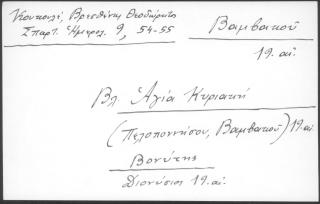 Βρεσθένης Θεοδώρητος
Σπαρτ. Ημερολ. 9, 54-55
Βαμβακού
19. αἰ.
Βλ. Ἁγία Κυριακή
(Πελοποννήσου, Βαμβακοῦ) 19 αἰ.
Βονύτης
Διονύσιος 19. αἰ.